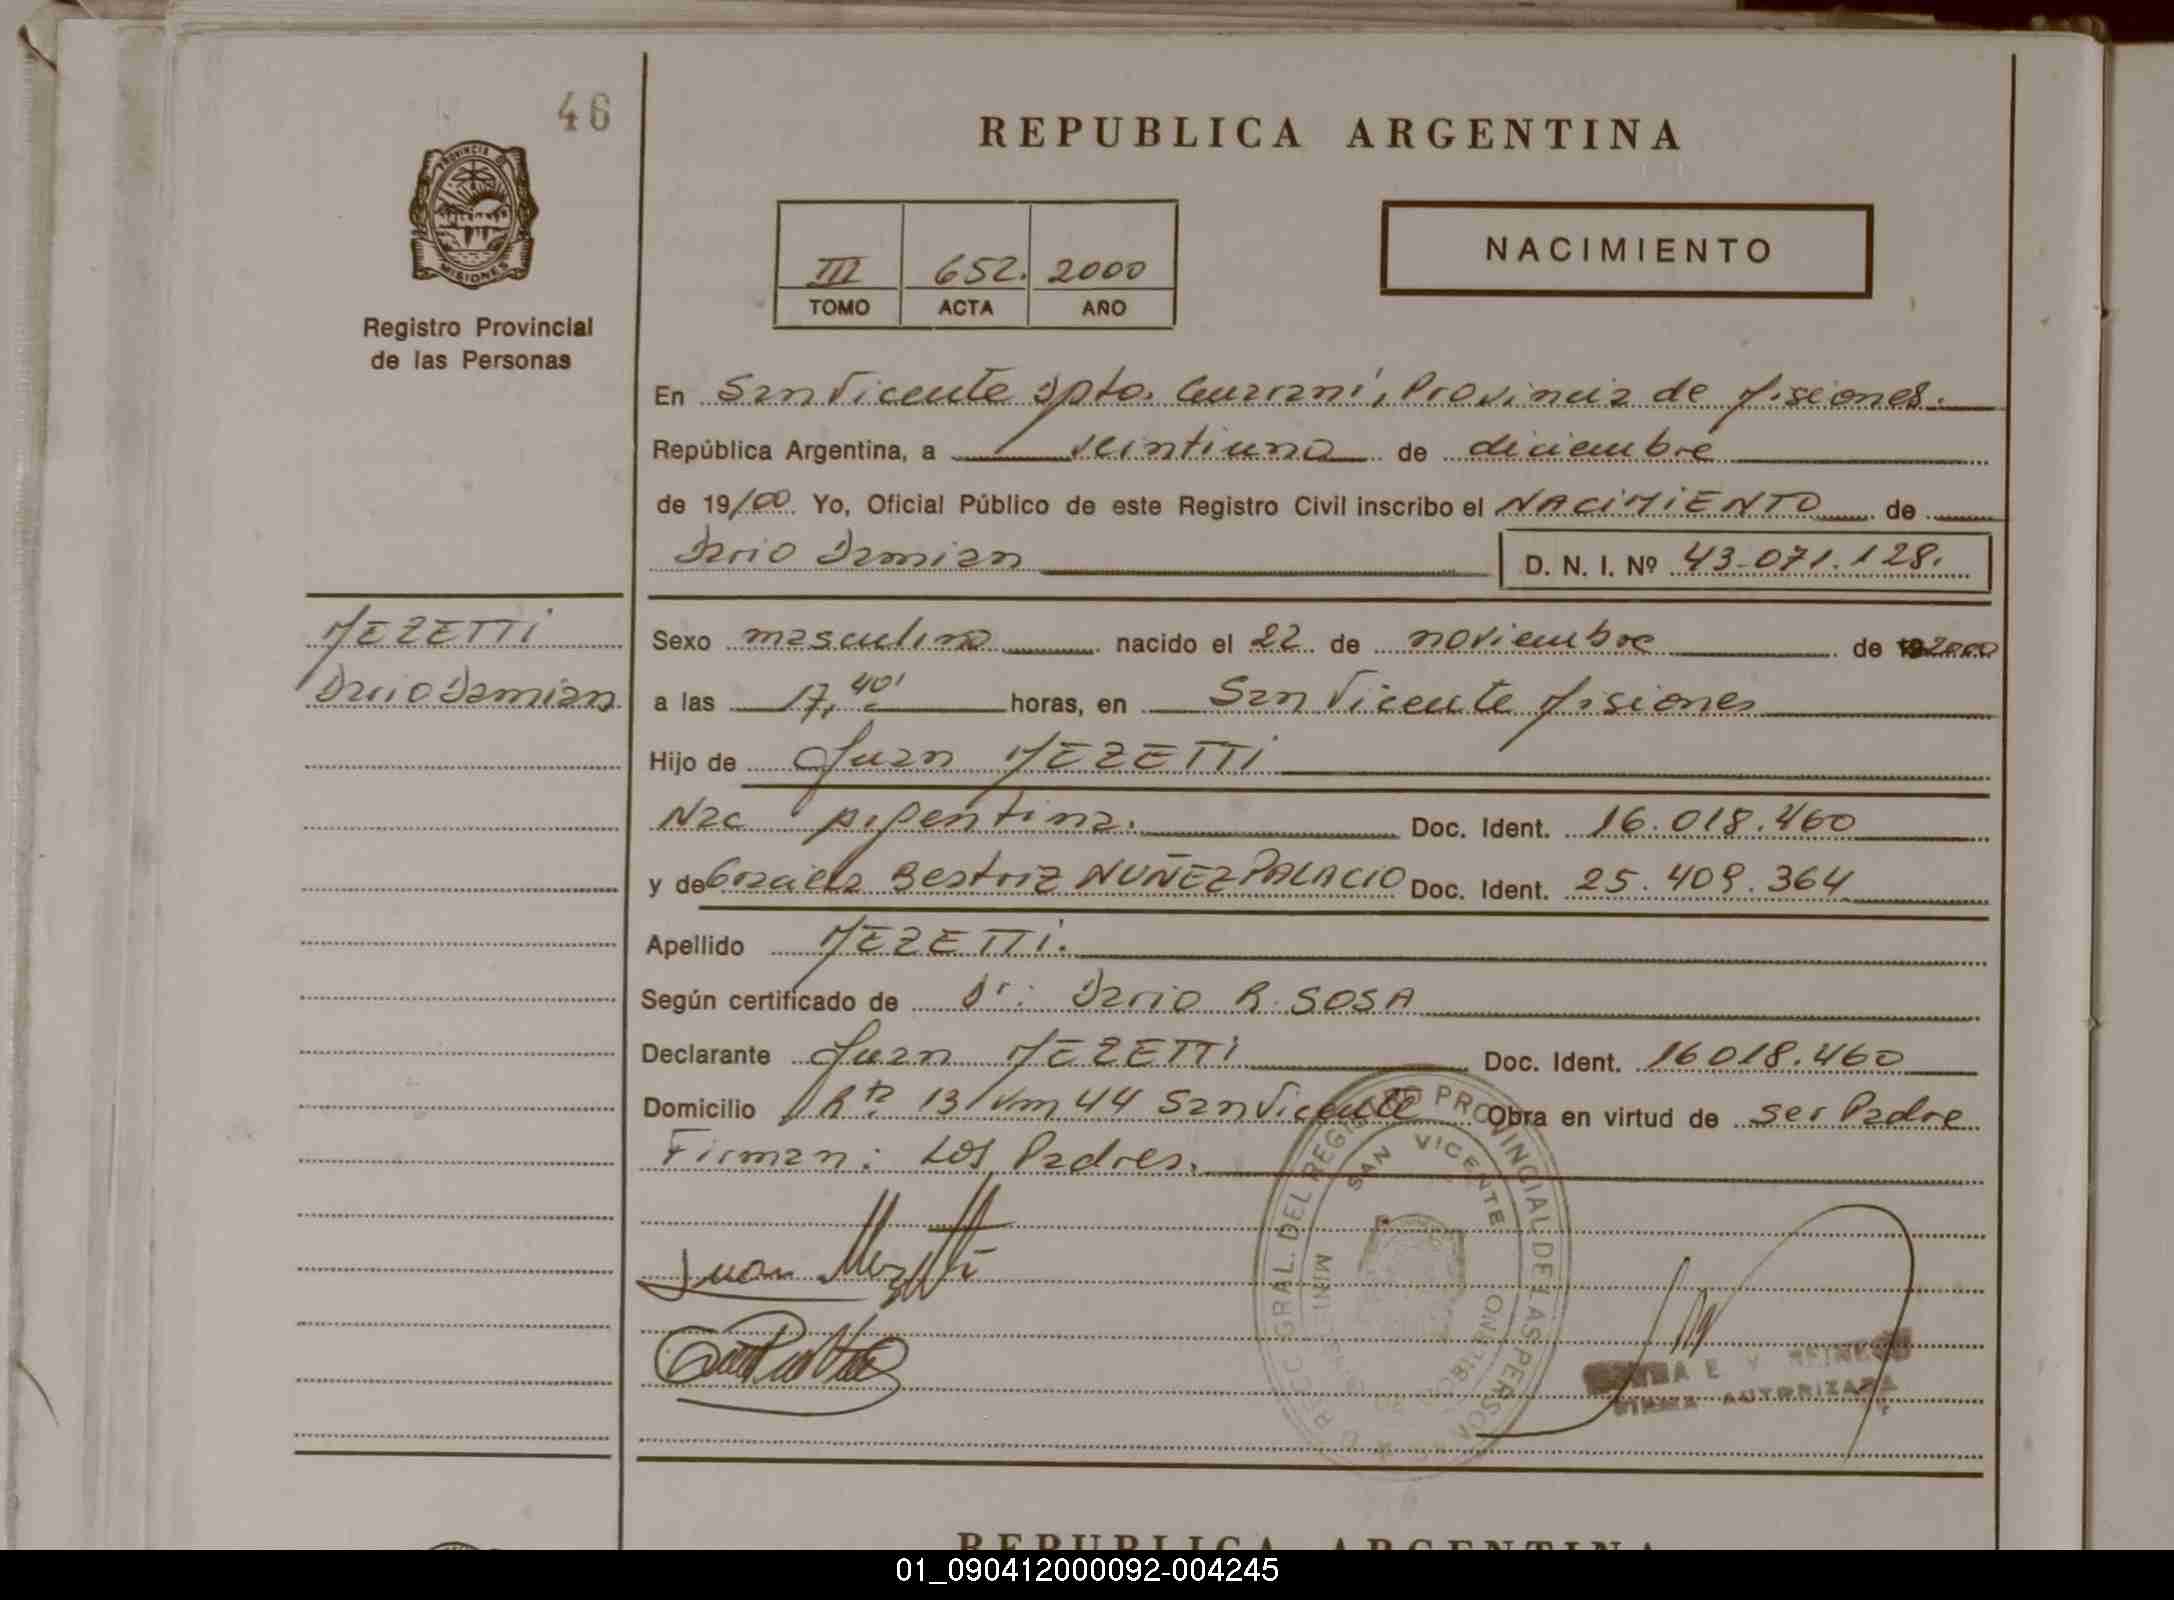 46
REPUBLICA ARGENTINA
PROVINCIA DE
MISIONES
Registro Provincial
de las Personas
III 652. 2000
TOMO ACTA AÑO
NACIMIENTO
En San Vicente Dpto. Guarani, Provincia de Misiones.
República Argentina, a veintiuno de diciembre
de 19/00 Yo, Oficial Público de este Registro Civil inscribo el NACIMIENTO de
Dario Damian D. N. I. Nº 43.071.128.
MEZETTI
Dario Damian
Sexo masculino nacido el 22 de noviembre de 2000
a las 17,40' horas, en San Vicente Misiones
Hijo de Juan MEZETTI
Nac Argentina. Doc. Ident. 16.018.460
y de Graciela Beatriz NUÑEZ PALACIO Doc. Ident. 25.409.364
Apellido MEZETTI.
Según certificado de Dr: Dario R. SOSA
Declarante Juan MEZETTI Doc. Ident. 16018.460
Domicilio Rta. 13 Km 44 San Vicente Obra en virtud de ser Padre
Firman: Los Padres.
GRAL. DEL REGISTRO PROVINCIAL DE LAS PERSONAS
SAN VICENTE
Juan Mezetti
FIRMA AUTORIZADA
REPUBLICA ARGENTINA
01_090412000092-004245